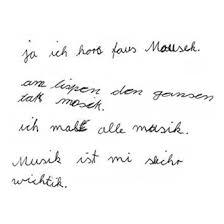 ja ich hors faus Mausek.
am lispen den gansen
tak mosik.
ich make alle musik.
Musik ist mi sehr
wichtik.